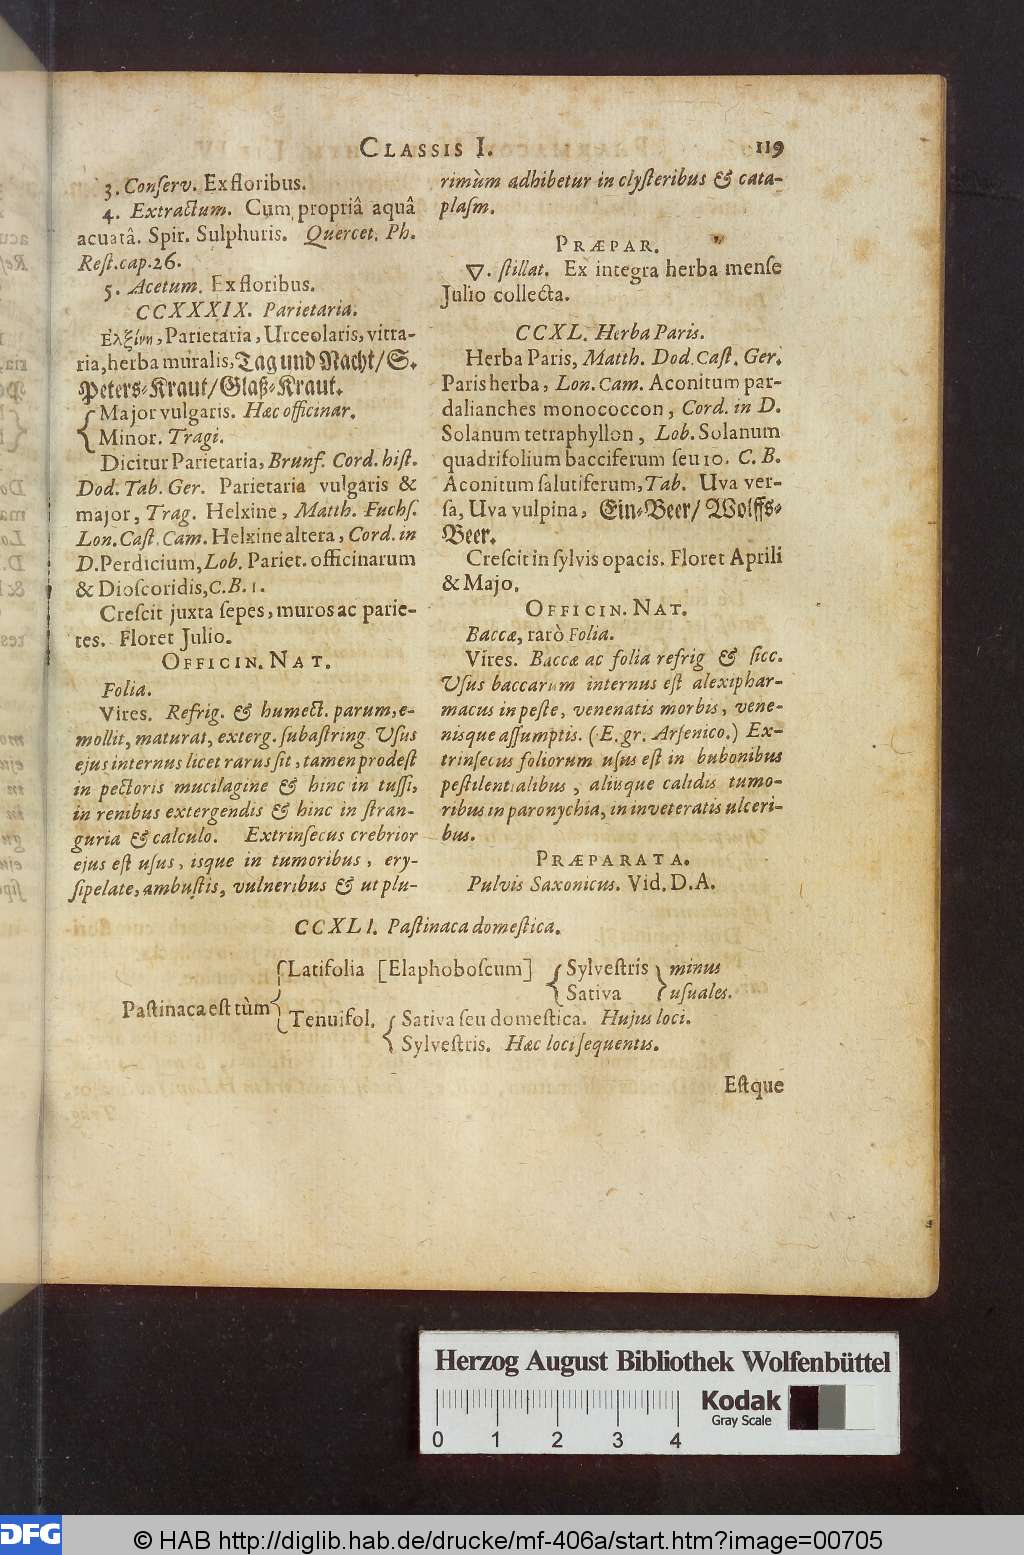 CLASSIS I. 119
3. Conſerv. Ex floribus.
4. Extractum. Cum propriâ aquâ
acuatâ. Spir. Sulphuris. Quercet. Ph.
Reſt. cap. 26.
5. Acetum. Ex floribus.
CCXXXIX. Parietaria.
Ἑλξίνη, Parietaria, Urceolaris, vitra-
ria, herba muralis, Tag und Nacht/ S.
Peters-Kraut/ Glaß-Kraut.
Major vulgaris. Hæc officinar.
Minor. Tragi.
Dicitur Parietaria, Brunf. Cord. hiſt.
Dod. Tab. Ger. Parietaria vulgaris &
major, Trag. Helxine, Matth. Fuchſ.
Lon. Caſt. Cam. Helxine altera, Cord. in
D. Perdicium, Lob. Pariet. officinarum
& Dioſcoridis, C. B. 1.
Creſcit juxta ſepes, muros ac parie-
tes. Floret Julio.
OFFICIN. NAT.
Folia.
Vires. Refrig. & humect. parum, e-
mollit, maturat, exterg. ſubaſtring. Uſus
ejus internus licet rarus ſit, tamen prodeſt
in pectoris mucilagine & hinc in tuſſi,
in renibus extergendis & hinc in ſtran-
guria & calculo. Extrinſecus crebrior
ejus eſt uſus, isque in tumoribus, ery-
ſipelate, ambuſtis, vulneribus & ut plu-
rimùm adhibetur in clyſteribus & cata-
plaſm.
PRÆPAR.
▽. ſtillat. Ex integra herba menſe
Julio collecta.
CCXL. Herba Paris.
Herba Paris, Matth. Dod. Caſt. Ger.
Paris herba, Lon. Cam. Aconitum par-
dalianches monococcon, Cord. in D.
Solanum tetraphyllon, Lob. Solanum
quadrifolium bacciferum ſeu 10. C. B.
Aconitum ſalutiferum, Tab. Uva ver-
ſa, Uva vulpina, Ein-Beer/ Wolffs-
Beer.
Creſcit in ſylvis opacis. Floret Aprili
& Majo.
OFFICIN. NAT.
Baccæ, rarò Folia.
Vires. Baccæ ac folia refrig & ſicc.
Uſus baccarum internus eſt alexiphar-
macus in peſte, venenatis morbis, vene-
nisque aſſumptis. (E. gr. Arſenico.) Ex-
trinſecus foliorum uſus eſt in bubonibus
peſtilentialibus, aliisque calidis tumo-
ribus in paronychia, in inveteratis ulceri-
bus.
PRÆPARATA.
Pulvis Saxonicus. Vid. D. A.
CCXLI. Paſtinaca domeſtica.
Latifolia [Elaphoboſcum] Sylveſtris minus
Sativa uſuales.
Paſtinaca eſt tùm
Tenuifol. Sativa ſeu domeſtica. Hujus loci.
Sylveſtris. Hæc loci ſequentis.
Eſtque
Herzog August Bibliothek Wolfenbüttel
Kodak
Gray Scale
0 1 2 3 4
DFG
© HAB http://diglib.hab.de/drucke/mf-406a/start.htm?image=00705